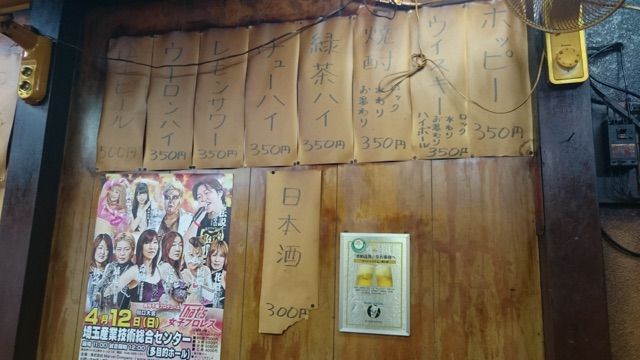 ホッピー
350円
ウイスキー
ロック
水わり
お湯わり
ハイボール
350円
焼酎
ロック
水わり
お湯わり
350円
緑茶ハイ
350円
チューハイ
350円
レモンサワー
350円
ウーロンハイ
350円
ビール
500円
日本酒
300円
4月12日(日)
川口大会
That's
女子プロレス
埼玉産業技術総合センター
(多目的ホール)